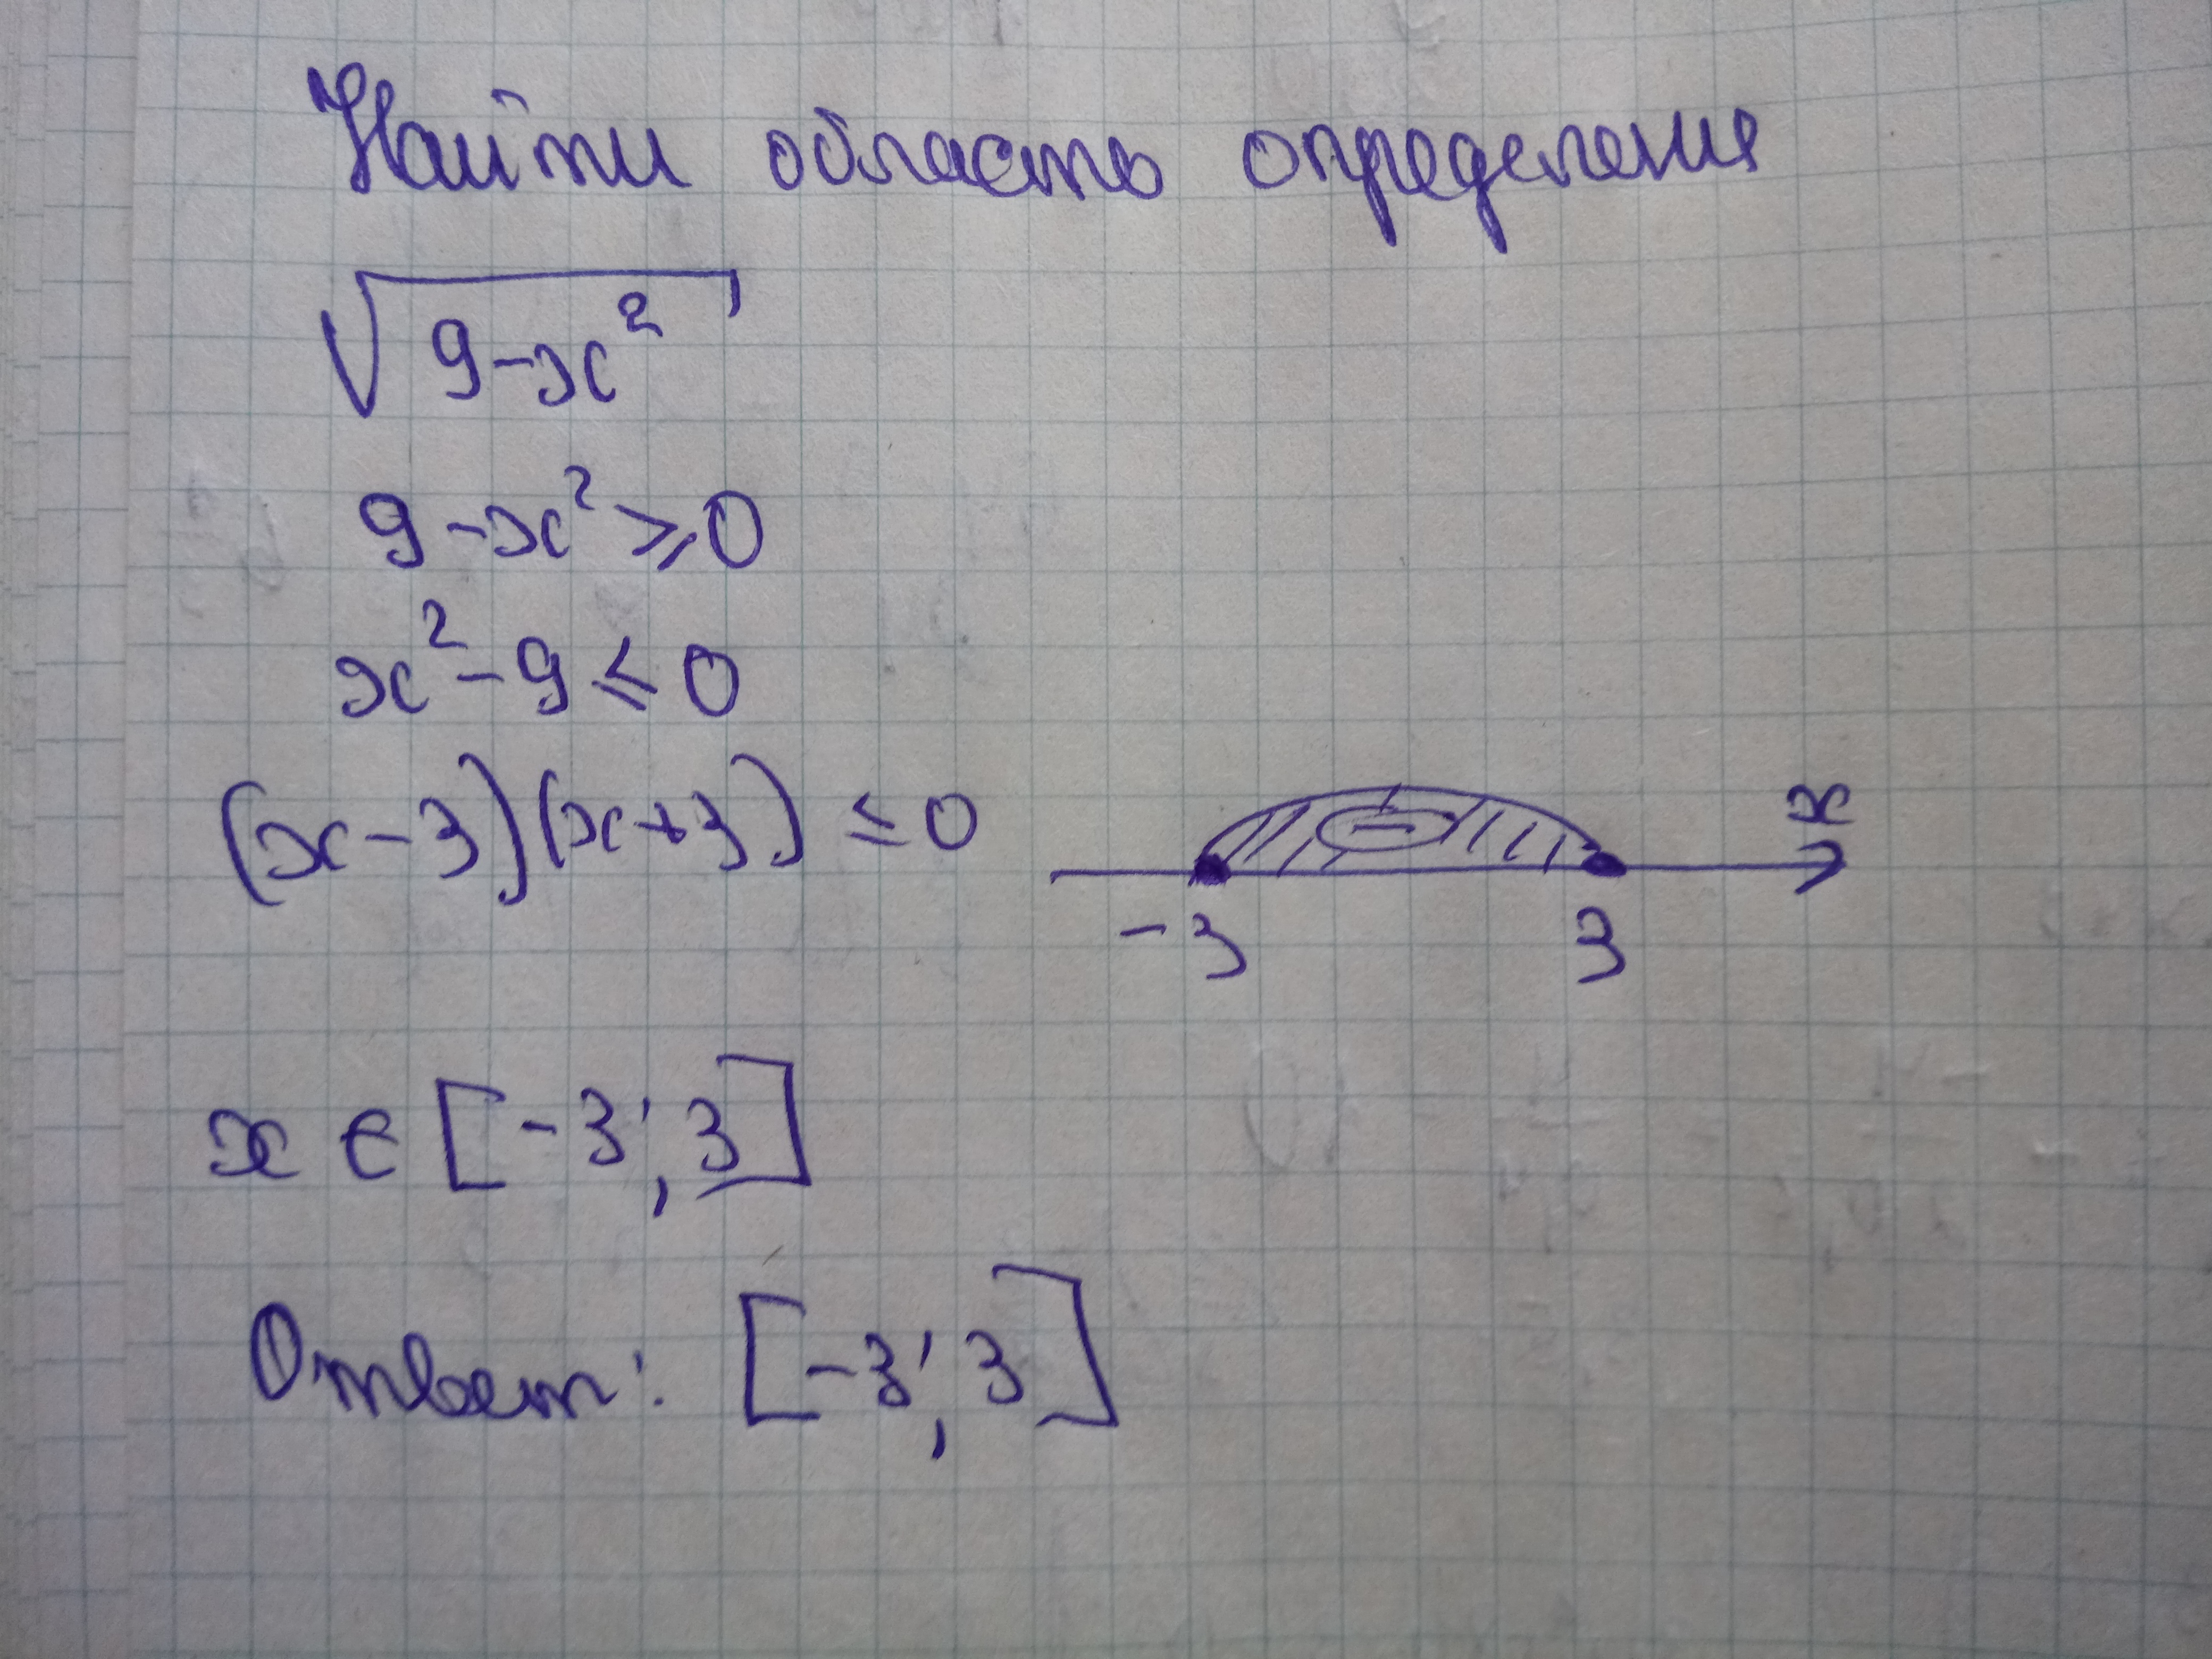 Найти область определения
√(9-x²)
9-x² ≥ 0
x²-9 ≤ 0
(x-3)(x+3) ≤ 0
- x
-3 3
x ∈ [-3; 3]
Ответ: [-3; 3]